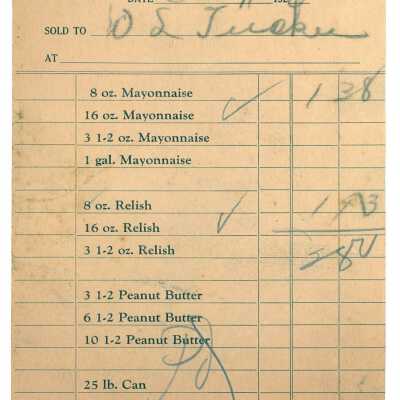 DATE
SOLD TO O L Tucker
AT
8 oz. Mayonnaise 1 38
16 oz. Mayonnaise ✓
3 1-2 oz. Mayonnaise
1 gal. Mayonnaise
8 oz. Relish
16 oz. Relish ✓
3 1-2 oz. Relish
3 1-2 Peanut Butter
6 1-2 Peanut Butter
10 1-2 Peanut Butter
25 lb. Can